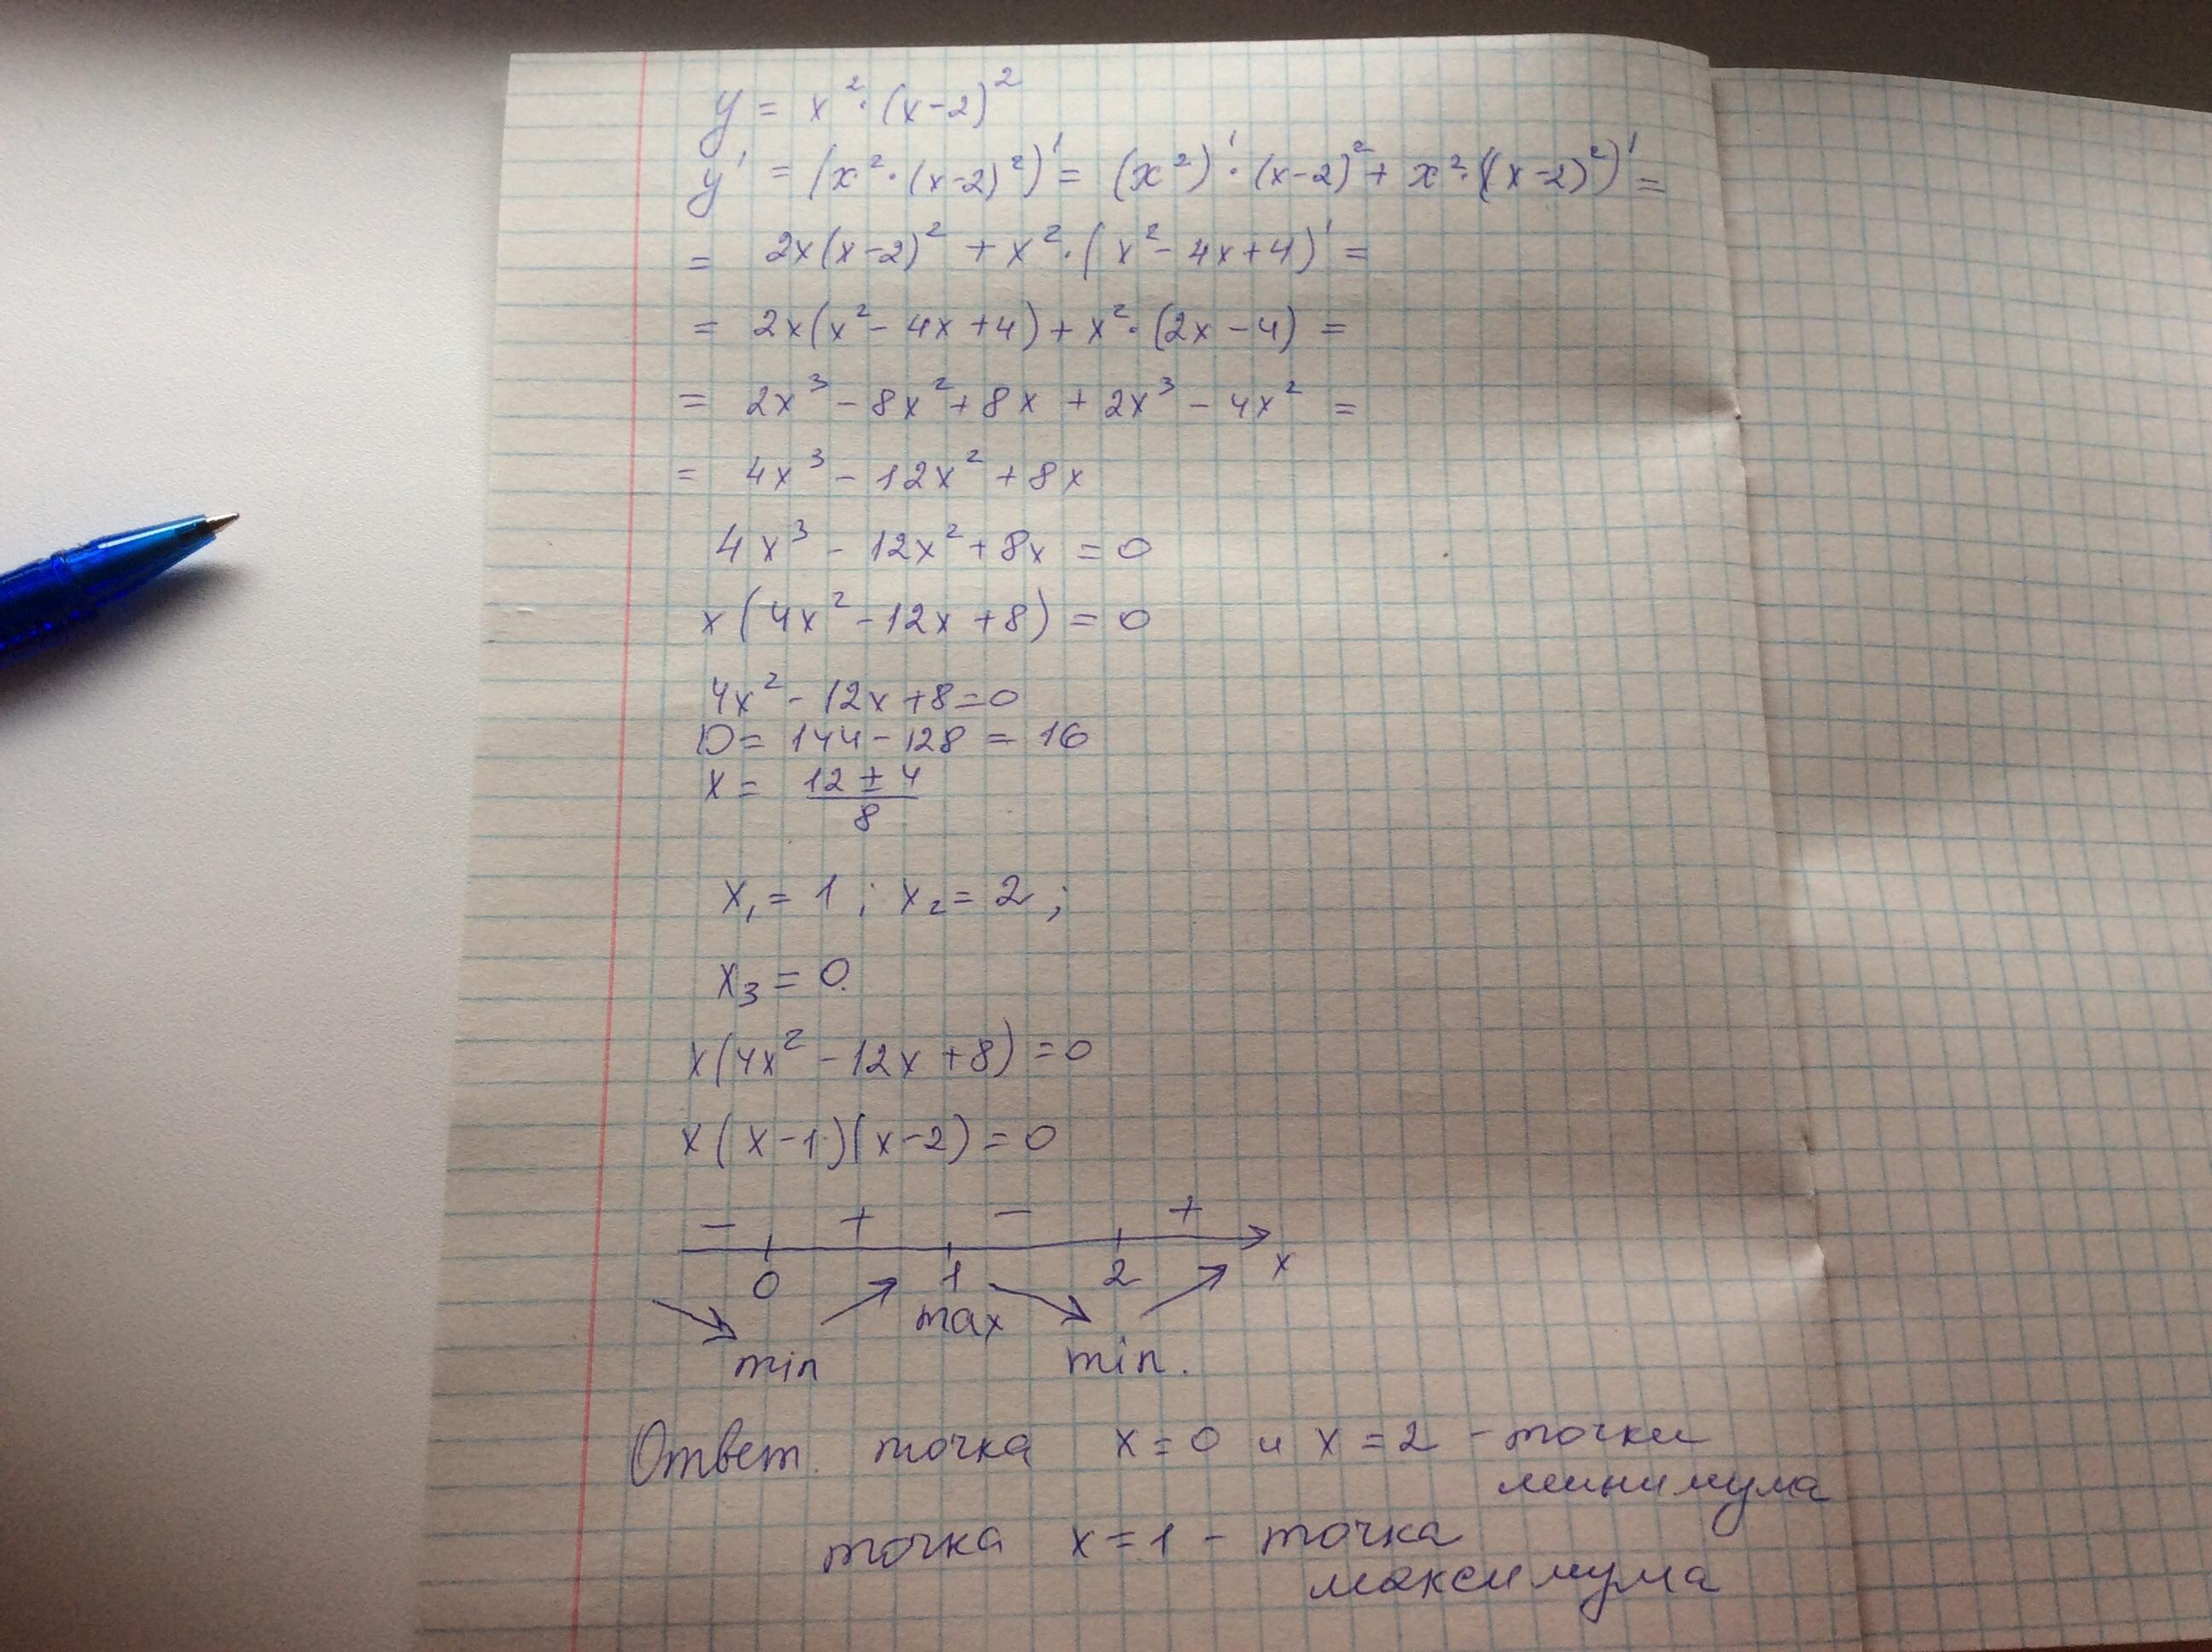 y = x² · (x-2)²
y' = (x² · (x-2)²)' = (x²)' · (x-2)² + x² · ((x-2)²)' =
= 2x(x-2)² + x² · (x² - 4x + 4)' =
= 2x(x² - 4x + 4) + x² · (2x - 4) =
= 2x³ - 8x² + 8x + 2x³ - 4x² =
= 4x³ - 12x² + 8x
4x³ - 12x² + 8x = 0
x(4x² - 12x + 8) = 0
4x² - 12x + 8 = 0
D = 144 - 128 = 16
x = (12 ± 4)/8
x₁ = 1 ; x₂ = 2 ;
x₃ = 0.
x(4x² - 12x + 8) = 0
x(x-1)(x-2) = 0
- + - +
0 1 2 x
min max min.
Ответ. точка x = 0 и x = 2 - точки
минимума
точка x = 1 - точка
максимума